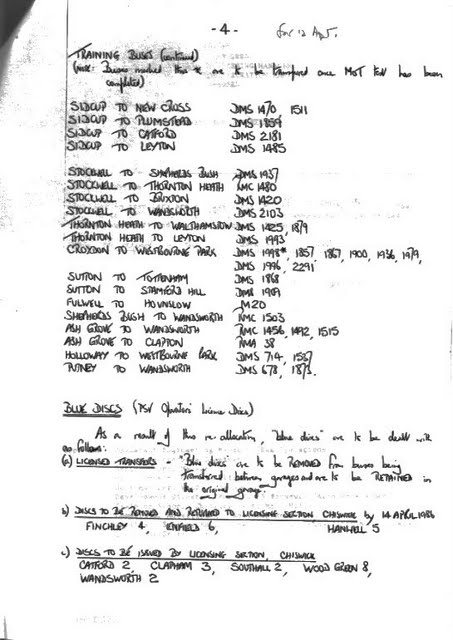 - 4 -
for 12 Apr.
TRAINING BUSES (continued)
(note: Buses marked thus * are to be transferred once MOT test has been
completed)
SIDCUP TO NEW CROSS DMS 1470 1511
SIDCUP TO PLUMSTEAD DMS 1859
SIDCUP TO CATFORD DMS 2181
SIDCUP TO LEYTON DMS 1485
STOCKWELL TO SHEPHERDS BUSH DMS 1937
STOCKWELL TO THORNTON HEATH RMC 1480
STOCKWELL TO BRIXTON DMS 1420
STOCKWELL TO WANDSWORTH DMS 2103
THORNTON HEATH TO WALTHAMSTOW DMS 1425, 1879
THORNTON HEATH TO LEYTON DMS 1993
CROYDON TO WESTBOURNE PARK DMS 1998*, 1857, 1867, 1900, 1936, 1979,
DMS 1996, 2291
SUTTON TO TOTTENHAM DMS 1868
SUTTON TO STAMFORD HILL DMS 1909
FULWELL TO HOUNSLOW M20
SHEPHERDS BUSH TO WANDSWORTH RMC 1503
ASH GROVE TO WANDSWORTH RMC 1456, 1492, 1515
ASH GROVE TO CLAPTON RMA 38
HOLLOWAY TO WESTBOURNE PARK DMS 714, 1587
PUTNEY TO WANDSWORTH DMS 678, 1873.
BLUE DISCS (PSV Operators' Licence Discs)
As a result of this re-allocation, "blue discs" are to be dealt with
as follows:
(a) LICENSED TRANSFERS - "Blue discs" are to be REMOVED from buses being
transferred between garages and are to be RETAINED in
the original garage.
b) DISCS TO BE REMOVED AND RETURNED TO LICENSING SECTION CHISWICK by 14 APRIL 1986
FINCHLEY 4, ENFIELD 6, HANWELL 5
c) DISCS TO BE ISSUED BY LICENSING SECTION, CHISWICK
CATFORD 2, CLAPHAM 3, SOUTHALL 2, WOOD GREEN 8,
WANDSWORTH 2